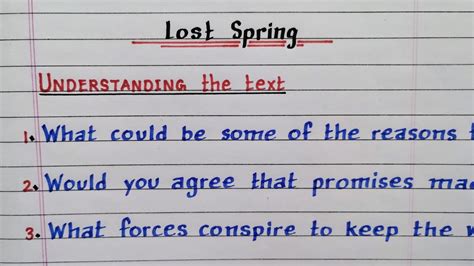 Lost Spring
UNDERSTANDING the text
1. What could be some of the reasons
2. Would you agree that promises
3. What forces conspire to keep the